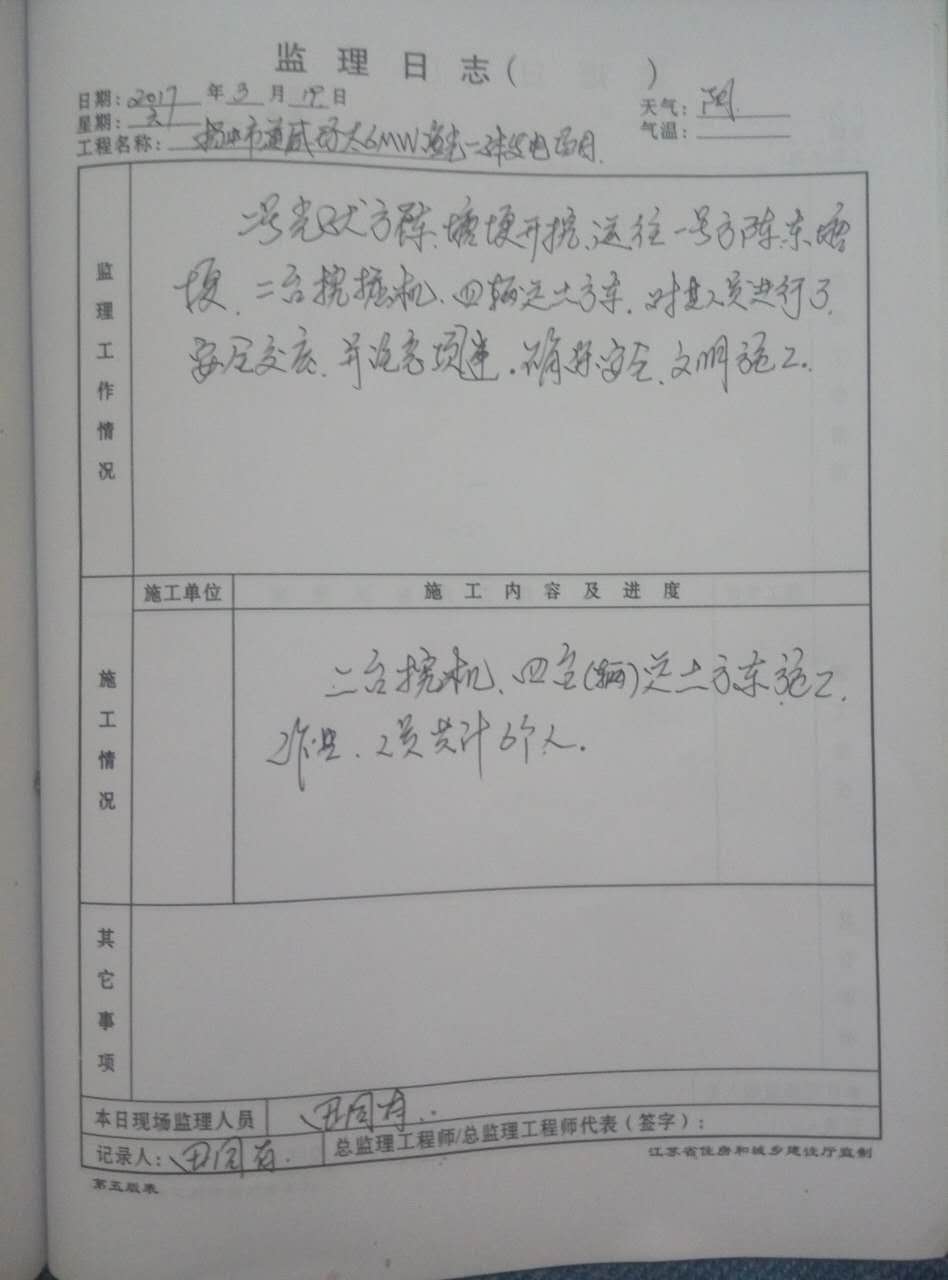 监理日志( )
日期:2017年3月19日
天气:阴
星期:
气温:
工程名称:扬中市道威 太6MW渔光一 发电项目.
监理工作情况
二号光伏方阵、塘埂开挖、运往一号方阵东塘
埂、二台挖掘机、四辆运土方车、对其人员进行了
安全交底、并 、确 安全、文明施工.
施工单位
施工内容及进度
施工情况
二台挖机、四 (辆)运土方车施工
作业、人员共计6个人.
其它事项
本日现场监理人员 田同有
记录人:田同有.
总监理工程师/总监理工程师代表(签字):
江苏省住房和城乡建设厅监制
第五版表